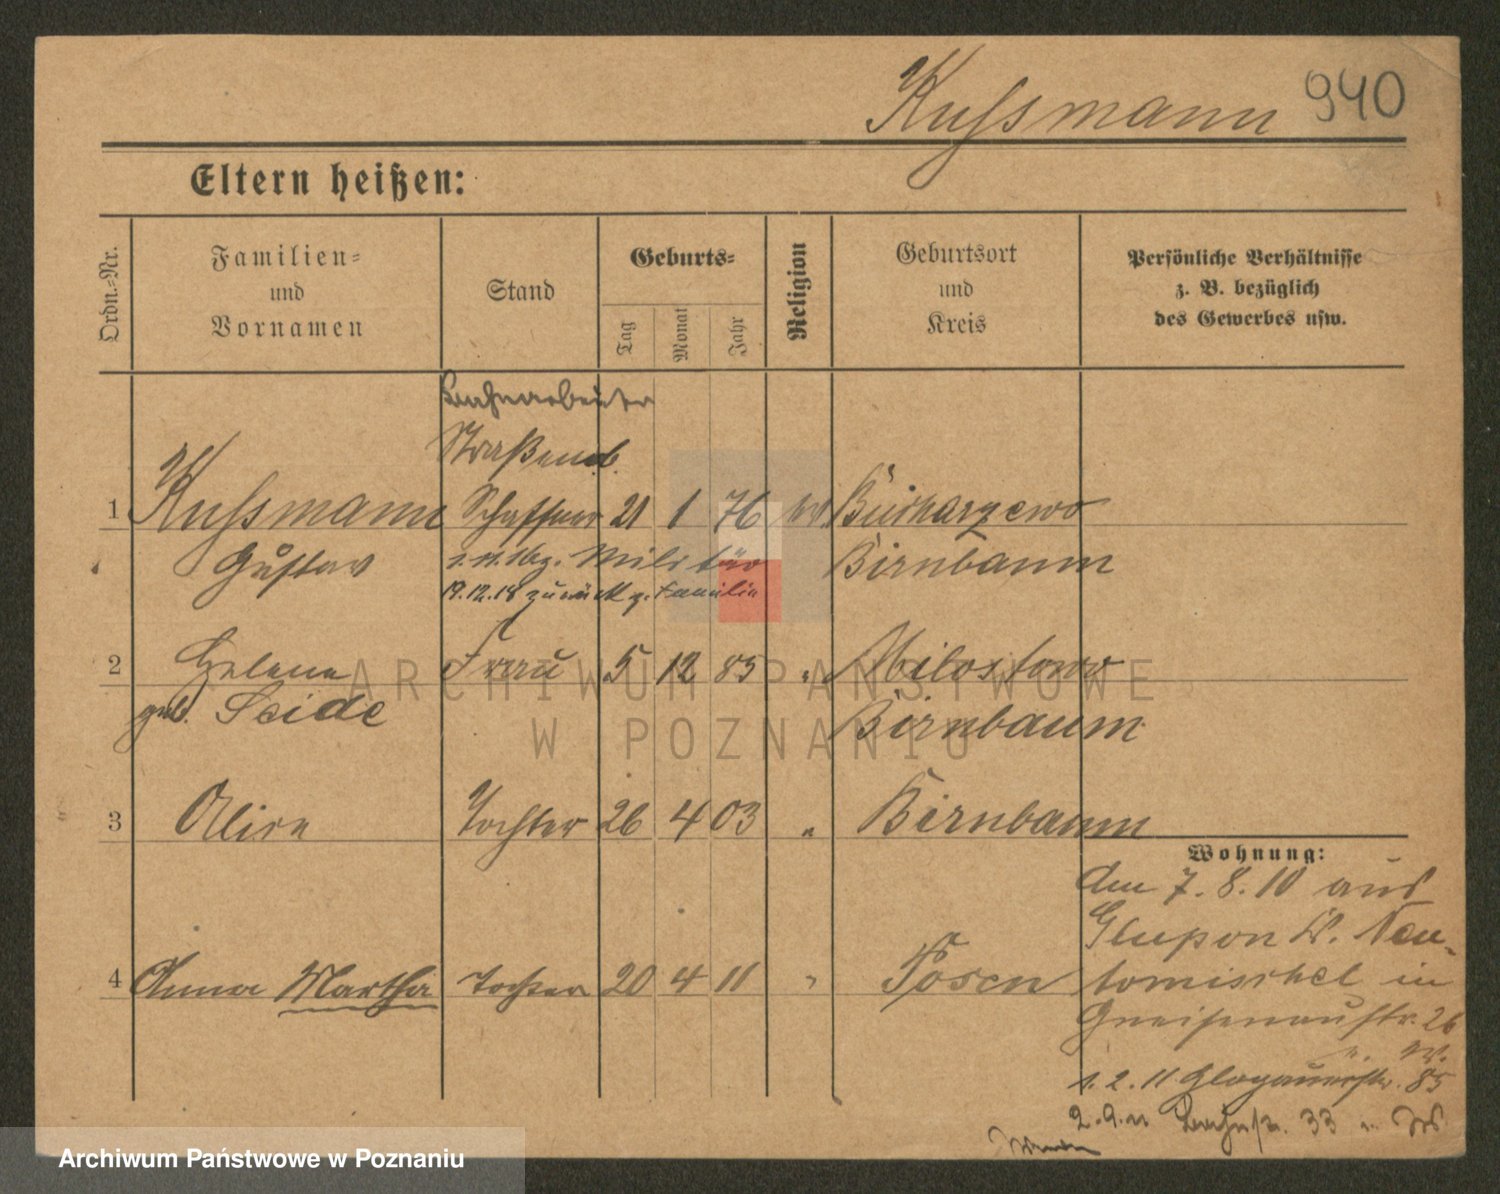 Kussmann 940
Eltern heißen:
Ordn.-Nr.
Familien-
und
Vornamen
Stand
Geburts-
Tag
Monat
Jahr
Religion
Geburtsort
und
Kreis
Persönliche Verhältnisse
z. B. bezüglich
des Gewerbes usw.
Bahnarbeiter
Straßenb.
1 Kussmann Schaffner 21 1 76
Gustav
Militär
Birnbaum
19.12.18 zurück z. Familie
2 Helene Frau 5 12 85 " Milostowo
geb. Seide
Birnbaum
3 Alice Tochter 26 4 03 " Birnbaum
Wohnung:
den 7.8.10 aus
Glupon Kr. Neu-
4 Anna Martha Tochter 20 4 11 " Posen tomischel in
Gneisenaustr. 26
1.2.11 Glogauerstr. 85
33
ARCHIWUM PAŃSTWOWE
W POZNANIU
Archiwum Państwowe w Poznaniu